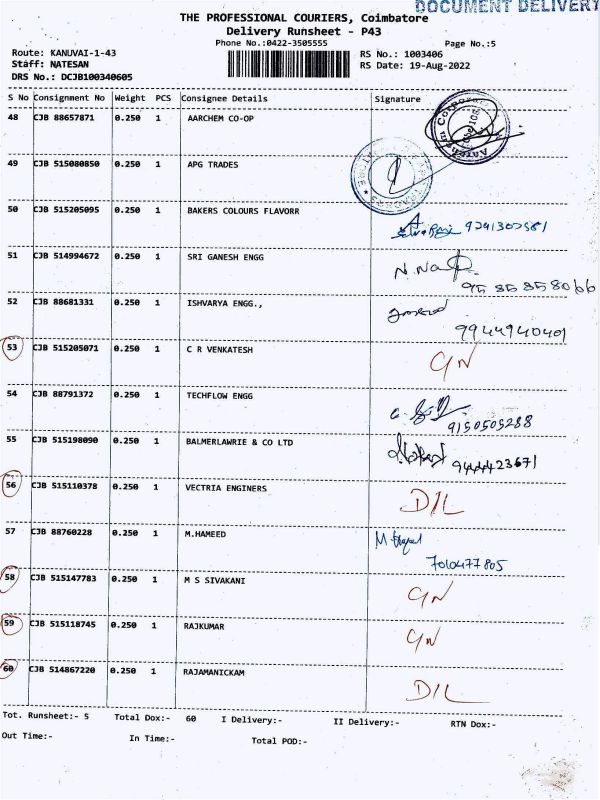 DOCUMENT DELIVERY
THE PROFESSIONAL COURIERS, Coimbatore
Delivery Runsheet - P43
Phone No.:0422-3505555
Page No.:5
Route: KANUVAI-1-43
RS No.: 1003406
Staff: NATESAN
RS Date: 19-Aug-2022
DRS No.: DCJB100340605
S No Consignment No Weight PCS Consignee Details Signature
48 CJB 88657871 0.250 1 AARCHEM CO-OP
49 CJB 515080850 0.250 1 APG TRADES
50 CJB 515205095 0.250 1 BAKERS COLOURS FLAVORR
51 CJB 514994672 0.250 1 SRI GANESH ENGG
52 CJB 88681331 0.250 1 ISHVARYA ENGG.,
9944940401
53 CJB 515205071 0.250 1 C R VENKATESH
54 CJB 88791372 0.250 1 TECHFLOW ENGG
9150505288
55 CJB 515198090 0.250 1 BALMERLAWRIE & CO LTD
9444423671
56 CJB 515110378 0.250 1 VECTRIA ENGINERS D/L
57 CJB 88760228 0.250 1 M.HAMEED
7010477805
58 CJB 515147783 0.250 1 M S SIVAKANI
59 CJB 515118745 0.250 1 RAJKUMAR
60 CJB 514867220 0.250 1 RAJAMANICKAM D/L
Tot. Runsheet:- 5 Total Dox:- 60 I Delivery:- II Delivery:- RTN Dox:-
Out Time:- In Time:- Total POD:-